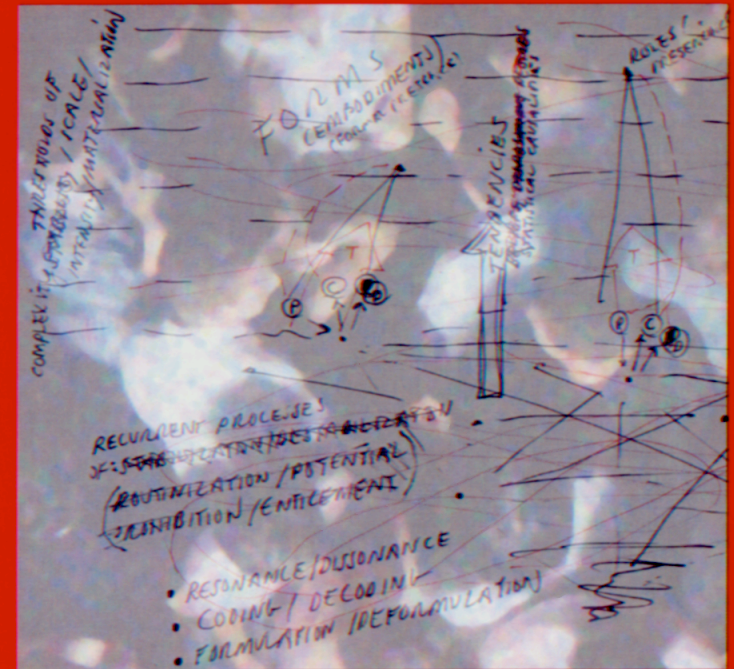 THRESHOLDS OF
COMPLEXITY / / SCALE /
INTENSITY / MATERIALIZATION
FORMS
(EMBODIMENTS)
TENDENCIES
STATISTICAL CAUSALITIES
ROLES /
PRESENCE
T
P
C
T
P
C
RECURRENT PROCESSES
OF:
(ROUTINIZATION / POTENTIAL)
PROHIBITION / ENTICEMENT
• RESONANCE / DISSONANCE
• CODING / DECODING
• FORMULATION / DEFORMULATION